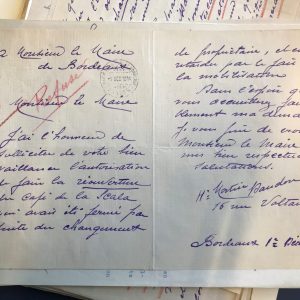 à Monsieur le Maire
de Bordeaux
Refusé
Monsieur le Maire
J'ai l'honneur de
solliciter de votre bien
veillance l'autorisation
de faire la réouverture
du Café de la Scala
qui avait été fermé par
suite du changement
de propriétaire, et
retardu par le fait
la mobilisation
Dans l'espoir que
vous accueillerez
ma dema
je vous prie de
Monsieur le Maire
mes bien respectu
salutations.
16 rue Voltaire
Bordeaux 1er Déc